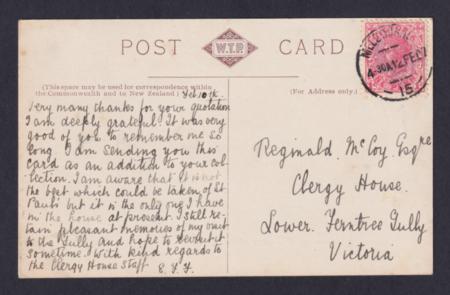 POST
W.T.P.
CARD
MELBOURNE
4-30A 12 FE 07
15
(This space may be used for correspondence within
the Commonwealth and to New Zealand.)
(For Address only.)
Feb 10th
Very many thanks for your quotation
I am deeply grateful. It was very
good of you to remember me so
long. I am sending you this
card as an addition to your col-
lection. I am aware that it is not
the best which could be taken of St
Paul's but it is the only one I have
in the house at present. I still re-
tain pleasant memories of my visit
to the Gully and hope to revisit it
sometime. With kind regards to
the Clergy House Staff
Reginald McCoy Esqre
Clergy House.
Lower Ferntree Gully
Victoria